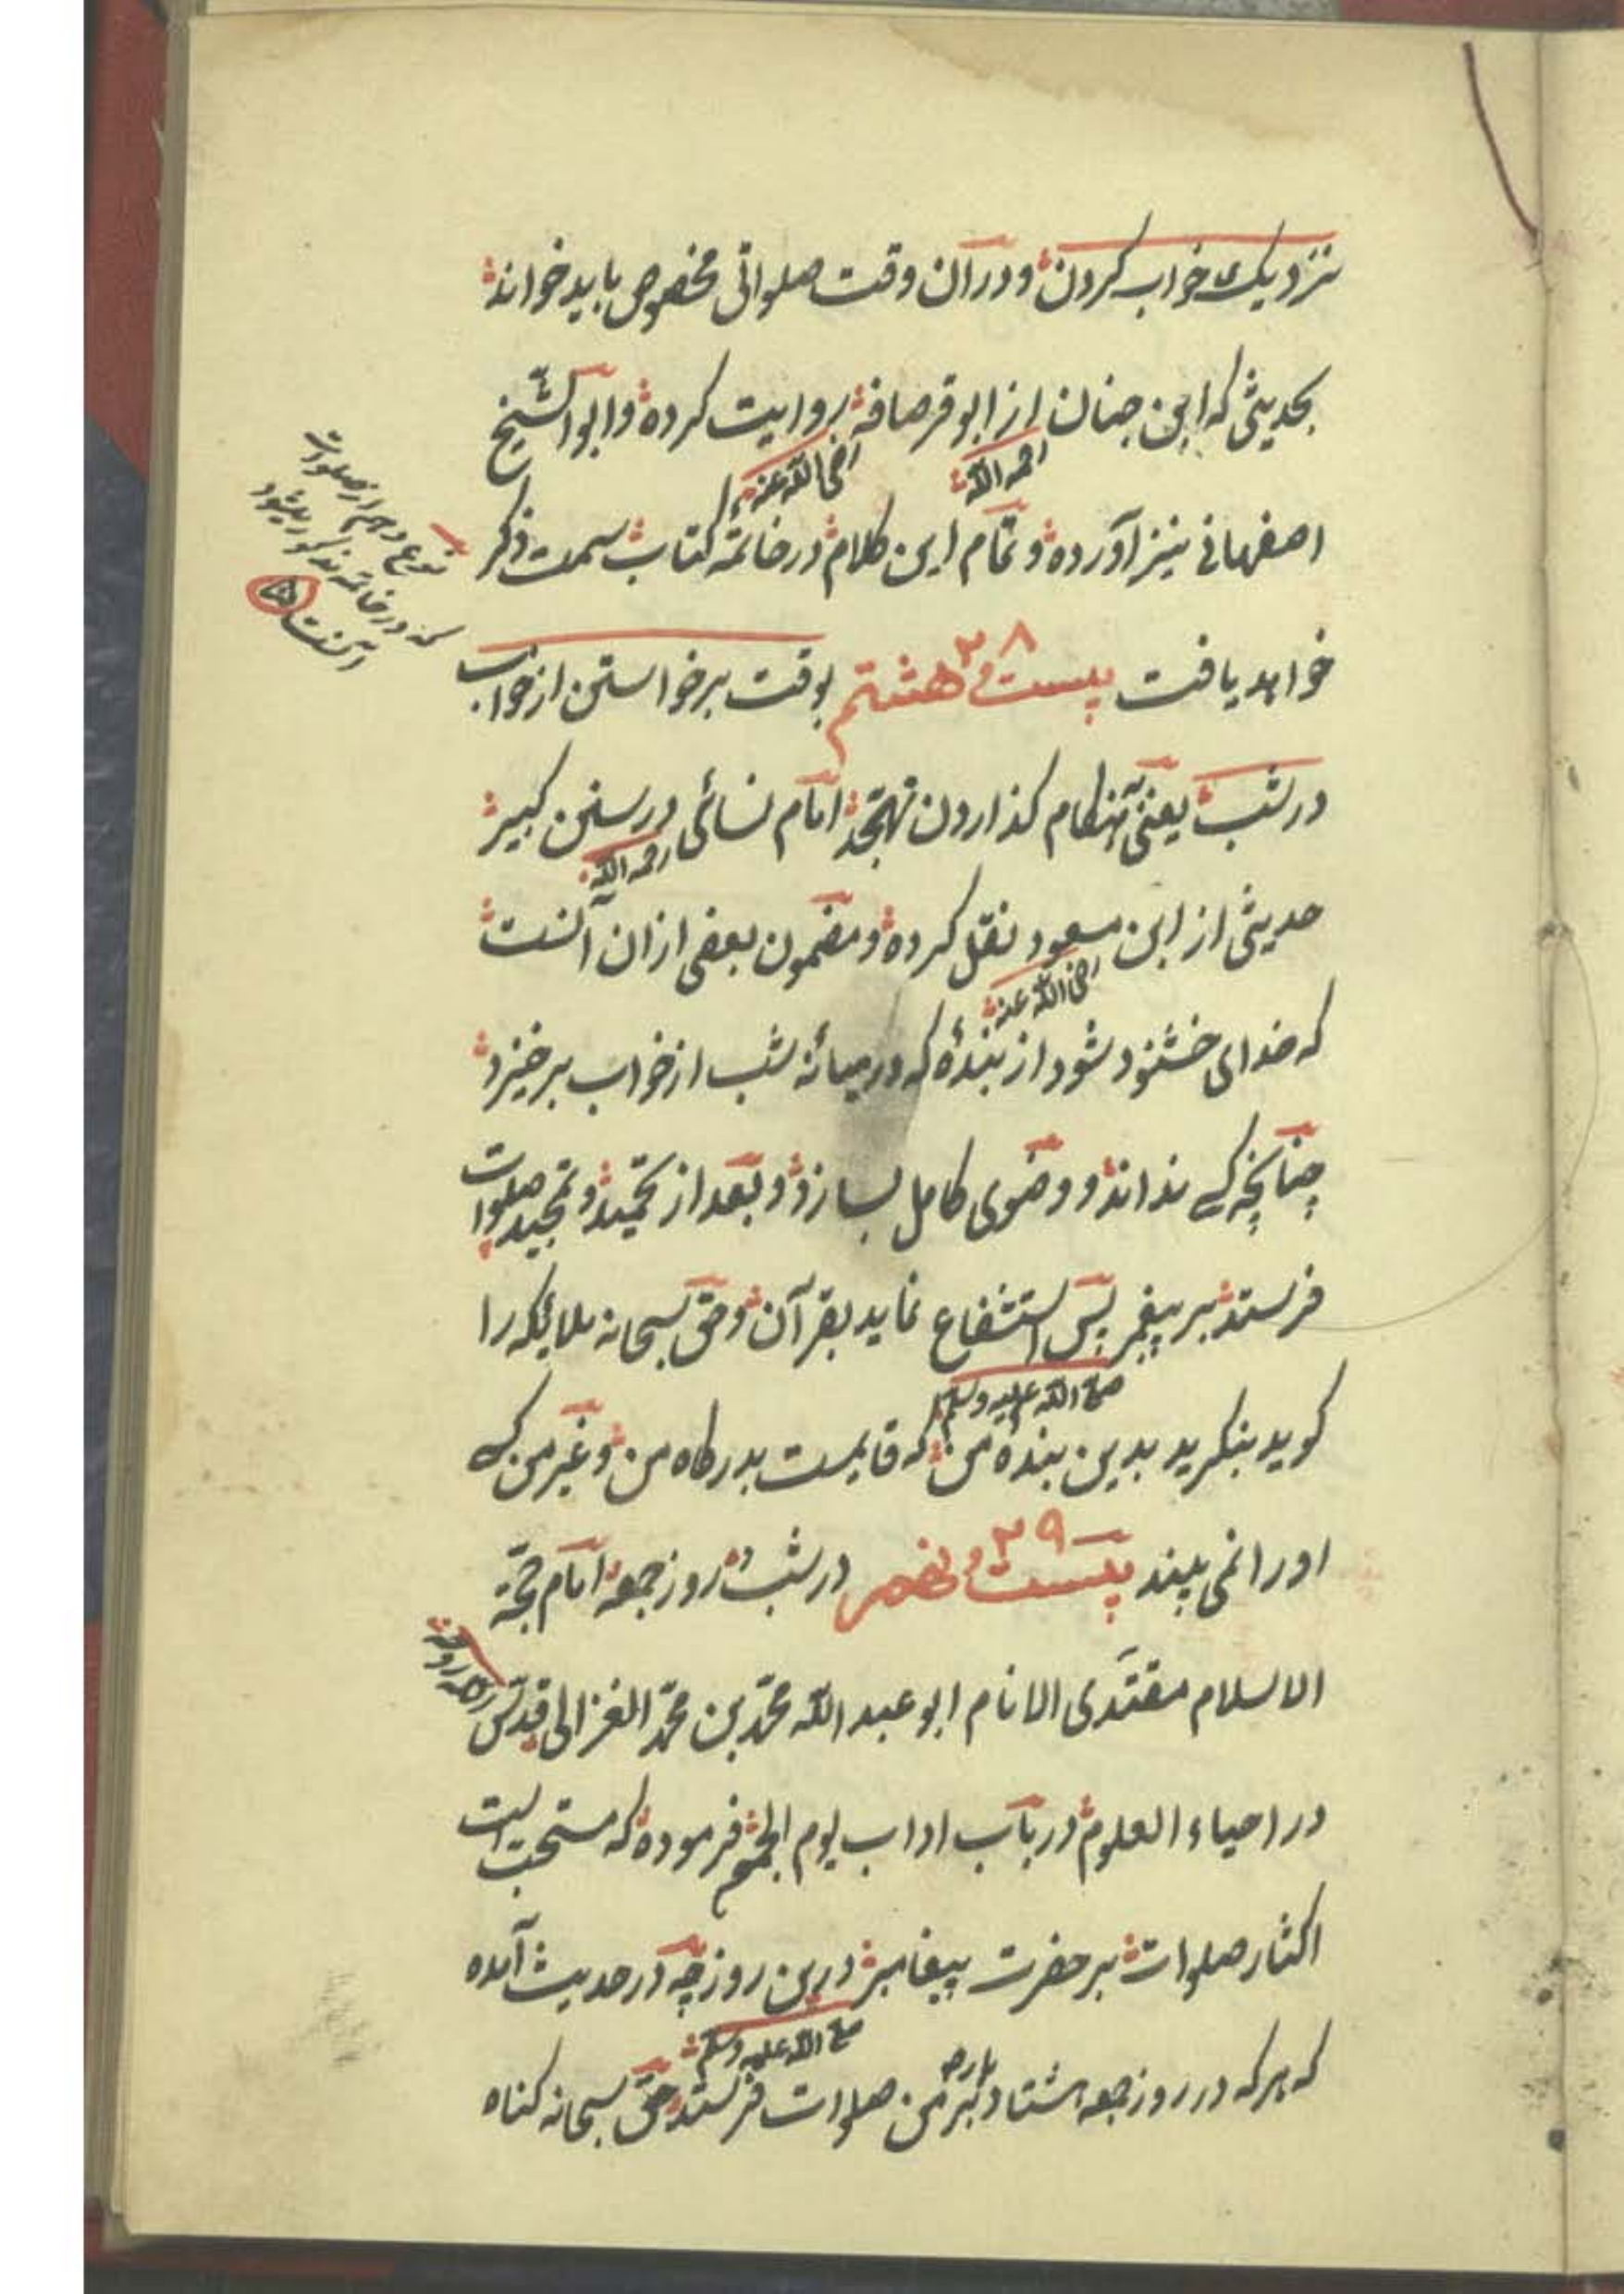 نزدیک خواب کردن و در آن وقت صلواتی مخصوص باید خواند
بحدیثی که ابن حبان از ابو قرصافه روایت کرده و ابو الشیخ
رحمه الله رضی الله عنه
اصفهانی نیز آورده و تمام این کلام در خاتمه کتاب سمت ذکر
خواهد یافت بیست و هشتم ۲۸ بوقت برخواستن از خواب
در شب یعنی هنکام کذاردن تهجد امام نسائی در سنن کبیر
رحمه الله
حدیثی از ابن مسعود نقل کرده و مضمون بعضی ازان آنست
رضی الله عنه
که خدای خشنود شود از بندهٔ که در میانه شب از خواب برخیزد
چنانچه کسی نداند و وضوی کامل بسازد و بعد از تحمید و تمجید صلوات
فرستد بر پیغمبر پس استشفاع نماید بقرآن و حق سبحانه ملائکه را
صلی الله علیه وسلم
کوید بنکرید بدین بندهٔ من که قایمست بدرکاه من و غیر من کسی
او را نمی بیند بیست و نهم ۲۹ در شب و روز جمعه امام حجة
الاسلام مقتدی الانام ابو عبد الله محمد بن محمد الغزالی قدس الله روحه
در احیاء العلوم در باب اداب یوم الجمعه فرموده که مستحب است
اکثار صلوات بر حضرت پیغامبر درین روز چه در حدیث آمده
صلی الله علیه وسلم
که هر که در روز جمعه هشتاد بار بر من صلوات فرستد حق سبحانه کناه
نوع دهم از صلوات
که در خاتمه مذکور میشود
آنست